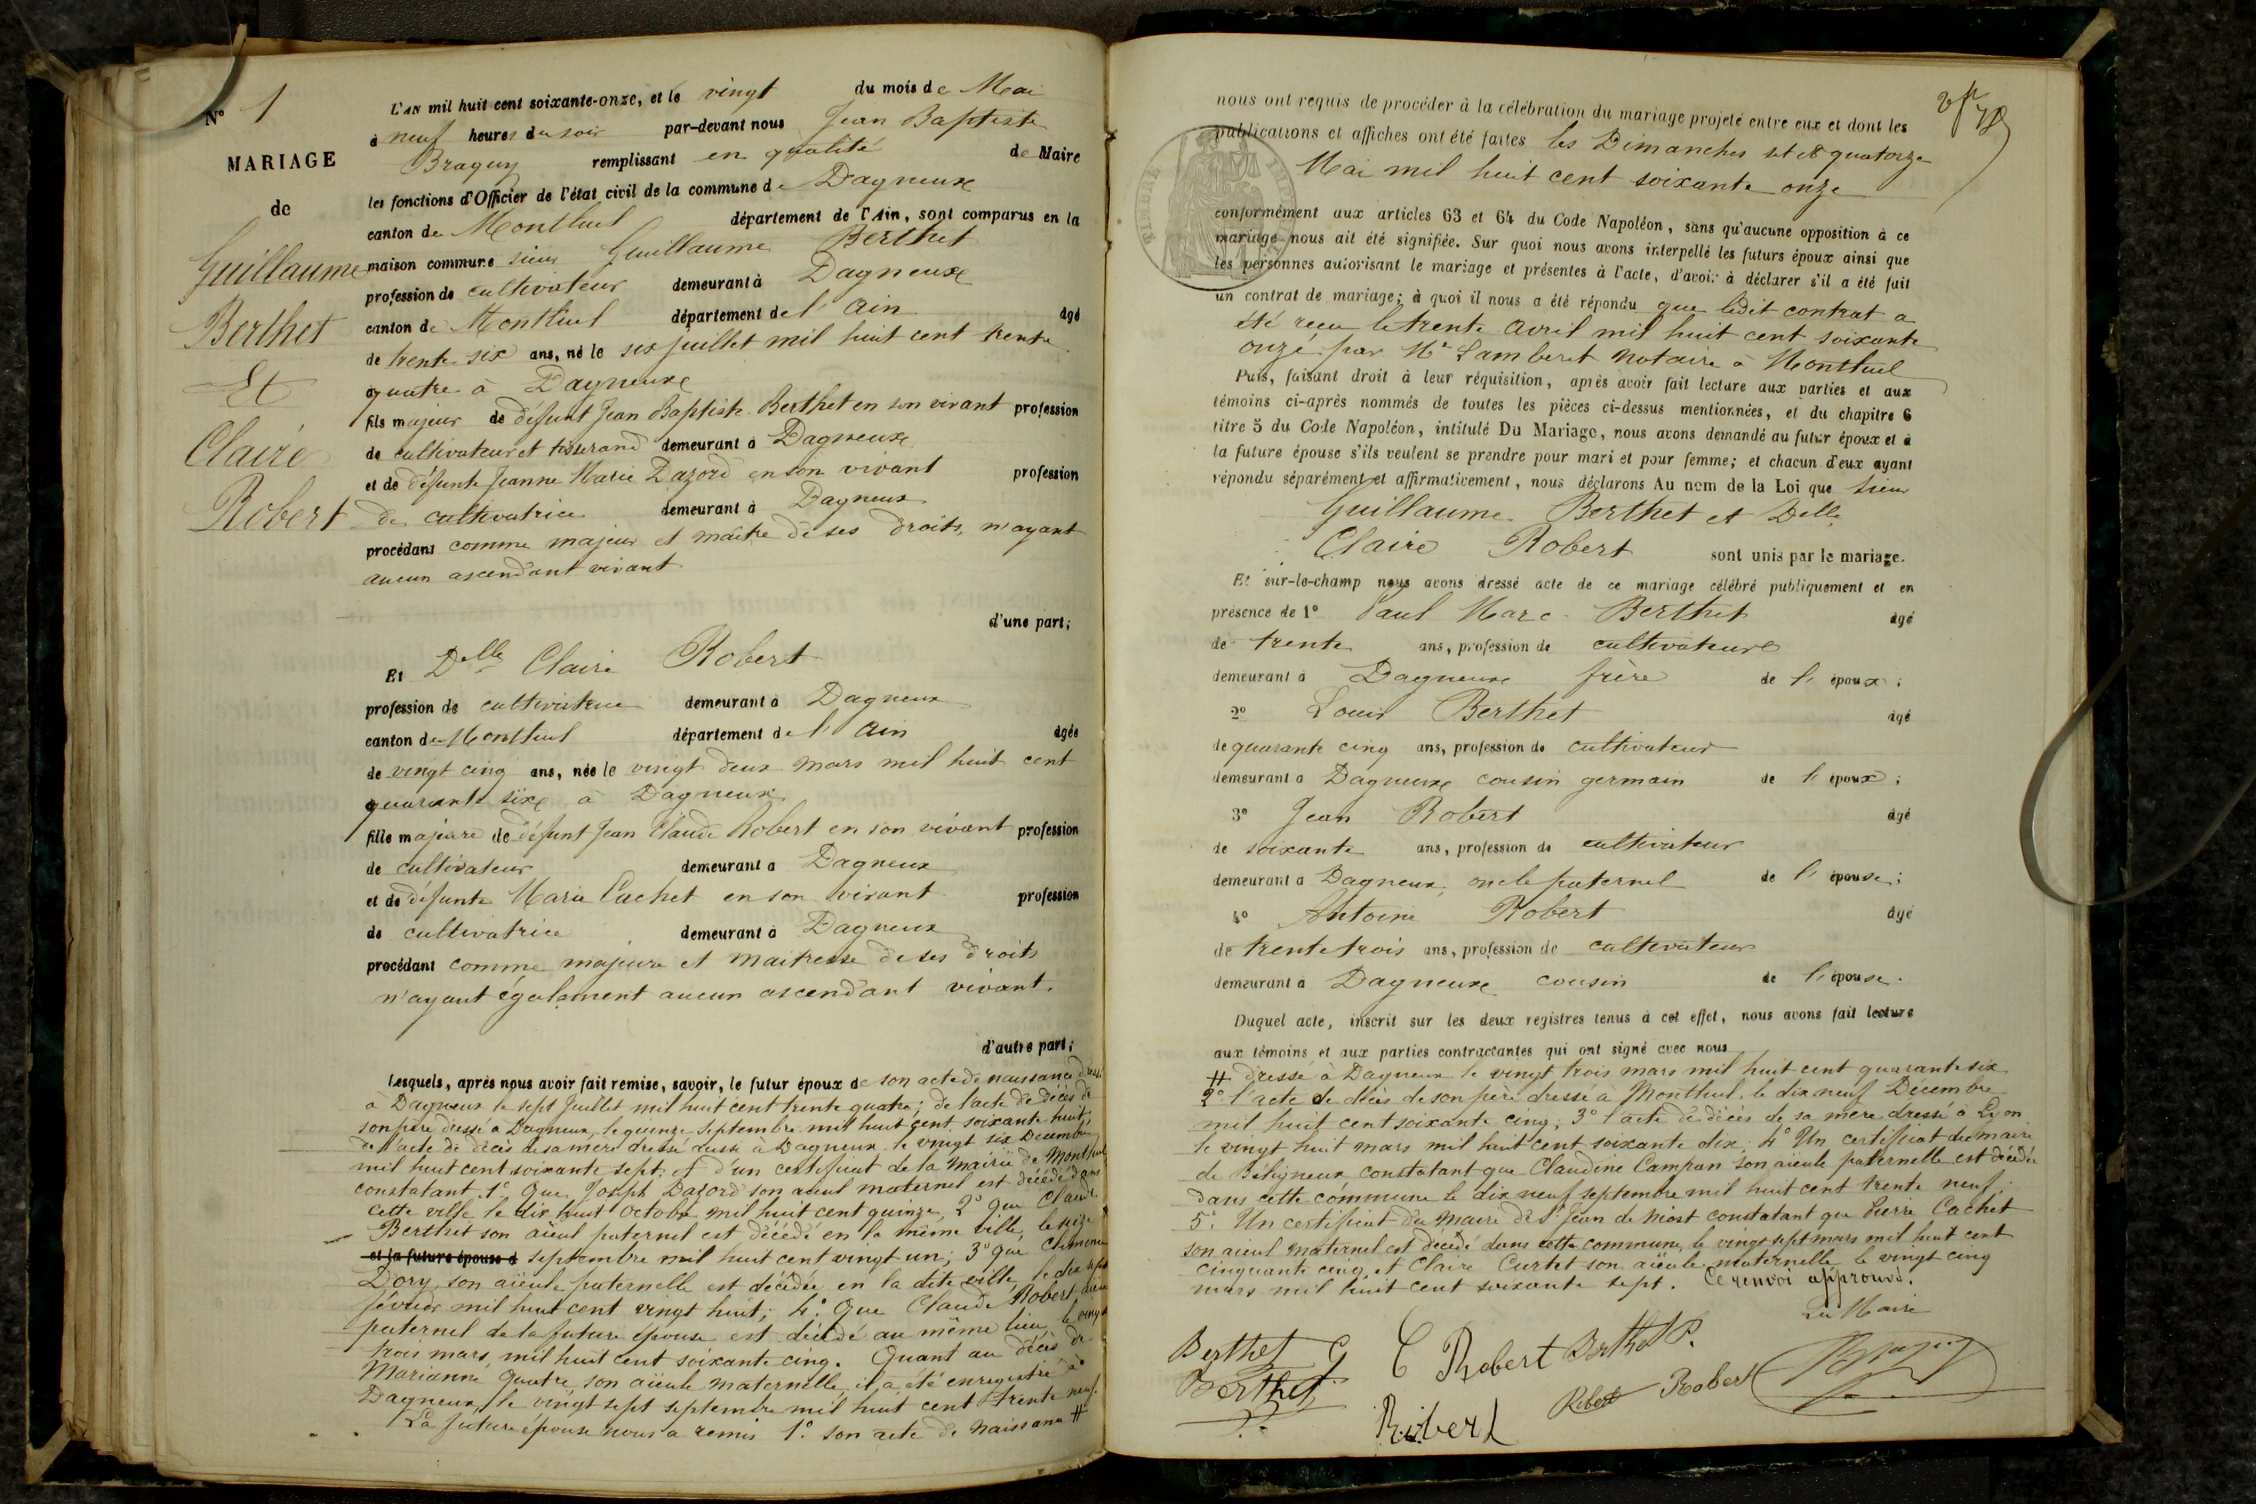 N° 1
MARIAGE
de
Guillaume
Berthet
Et
Claire
Robert
L'an mil huit cent soixante-onze, et le vingt du mois de Mai
à neuf heures du soir par-devant nous Jean Baptiste
Braguy remplissant en qualité de Maire
les fonctions d'Officier de l'état civil de la commune de Dagneux
canton de Montluel département de l'Ain, sont comparus en la
maison commune sieur Guillaume Berthet
profession de cultivateur demeurant à Dagneux
canton de Montluel département de l'Ain âgé
de trente six ans, né le six juillet mil huit cent trente
quatre à Dagneux
fils majeur de défunt Jean Baptiste Berthet en son vivant profession
de cultivateur et tisserand demeurant à Dagneux
et de défunte Jeanne Marie Dazord en son vivant profession
de cultivatrice demeurant à Dagneux
procédant comme majeur et maître de ses droits, n'ayant
aucun ascendant vivant
d'une part;
Et Delle Claire Robert
profession de cultivatrice demeurant à Dagneux
canton de Montluel département de l'Ain âgée
de vingt cinq ans, née le vingt deux mars mil huit cent
quarante six à Dagneux
fille majeure de défunt Jean Claude Robert en son vivant profession
de cultivateur demeurant à Dagneux
et de défunte Marie Cachet en son vivant profession
de cultivatrice demeurant à Dagneux
procédant comme majeure et maitresse de ses droits
n'ayant également aucun ascendant vivant.
d'autre part;
Lesquels, après nous avoir fait remise, savoir, le futur époux de son acte de naissance dressé
à Dagneux le sept Juillet mil huit cent trente quatre; de l'acte de décès de
son père dressé à Dagneux, le quinze septembre mil huit cent soixante huit;
de l'acte de décès de sa mère dressé aussi à Dagneux le vingt six Décembre
mil huit cent soixante sept et d'un certificat de la Mairie de Montluel
constatant 1° Que Joseph Dazord son aïeul maternel est décédé dans
cette ville le dix huit octobre mil huit cent quinze, 2° que Claude
Berthet son aïeul paternel est décédé en la même ville, le seize
et la future épouse d septembre mil huit cent vingt un; 3° que
Dory son aïeule paternelle est décédée en la dite ville, le dix sept
février mil huit cent vingt huit; 4° Que Claude Robert, aïeul
paternel de la future épouse est décédé au même lieu le vingt
trois mars mil huit cent soixante cinq. Quant au décès de
Marianne Quatre son aïeule maternelle, il a été enregistré à
Dagneux, le vingt sept septembre mil huit cent trente neuf.
La future épouse nous a remis 1° son acte de naissance #
nous ont requis de procéder à la célébration du mariage projeté entre eux et dont les
publications et affiches ont été faites les Dimanches sept et quatorze
Mai mil huit cent soixante onze
conformément aux articles 63 et 64 du Code Napoléon, sans qu'aucune opposition à ce
mariage nous ait été signifiée. Sur quoi nous avons interpellé les futurs époux ainsi que
les personnes autorisant le mariage et présentes à l'acte, d'avoir à déclarer s'il a été fait
un contrat de mariage; à quoi il nous a été répondu que ledit contrat a
été reçu le trente avril mil huit cent soixante
onze par Me Lamberet Notaire à Montluel
Puis, faisant droit à leur réquisition, après avoir fait lecture aux parties et aux
témoins ci-après nommés de toutes les pièces ci-dessus mentionnées, et du chapitre 6
titre 5 du Code Napoléon, intitulé Du Mariage, nous avons demandé au futur époux et à
la future épouse s'ils veulent se prendre pour mari et pour femme; et chacun d'eux ayant
répondu séparément et affirmativement, nous déclarons Au nom de la Loi que sieur
Guillaume Berthet et Delle
Claire Robert sont unis par le mariage.
Et sur-le-champ nous avons dressé acte de ce mariage célébré publiquement et en
présence de 1° Paul Marc Berthet âgé
de trente ans, profession de cultivateur
demeurant à Dagneux frère de l'époux;
2° Louis Berthet âgé
de quarante cinq ans, profession de cultivateur
demeurant à Dagneux cousin germain de l'époux;
3° Jean Robert âgé
de soixante ans, profession de cultivateur
demeurant à Dagneux, oncle paternel de l'épouse;
4° Antoine Robert âgé
de trente trois ans, profession de cultivateur
demeurant à Dagneux cousin de l'épouse.
Duquel acte, inscrit sur les deux registres tenus à cet effet, nous avons fait lecture
aux témoins et aux parties contractantes qui ont signé avec nous
# dressé à Dagneux le vingt trois mars mil huit cent quarante six
2° l'acte de décès de son père dressé à Montluel, le dix neuf Décembre
mil huit cent soixante cinq, 3° l'acte de décès de sa mère dressé à Lyon
le vingt huit mars mil huit cent soixante dix; 4° Un certificat du maire
de Béligneux, constatant que Claudine Campan son aïeule paternelle est décédée
dans cette commune le dix neuf septembre mil huit cent trente neuf;
5° Un certificat du Maire de St Jean de Niost constatant que Pierre Cachet
son aïeul maternel est décédé dans cette commune, le vingt sept mars mil huit cent
cinquante cinq et Claire Curtet son aïeule maternelle le vingt cinq
mars mil huit cent soixante sept. Ce renvoi approuvé.
Le Maire
Berthet G
C Robert
Berthet P.
Berthet
Robert
Robert
Robert